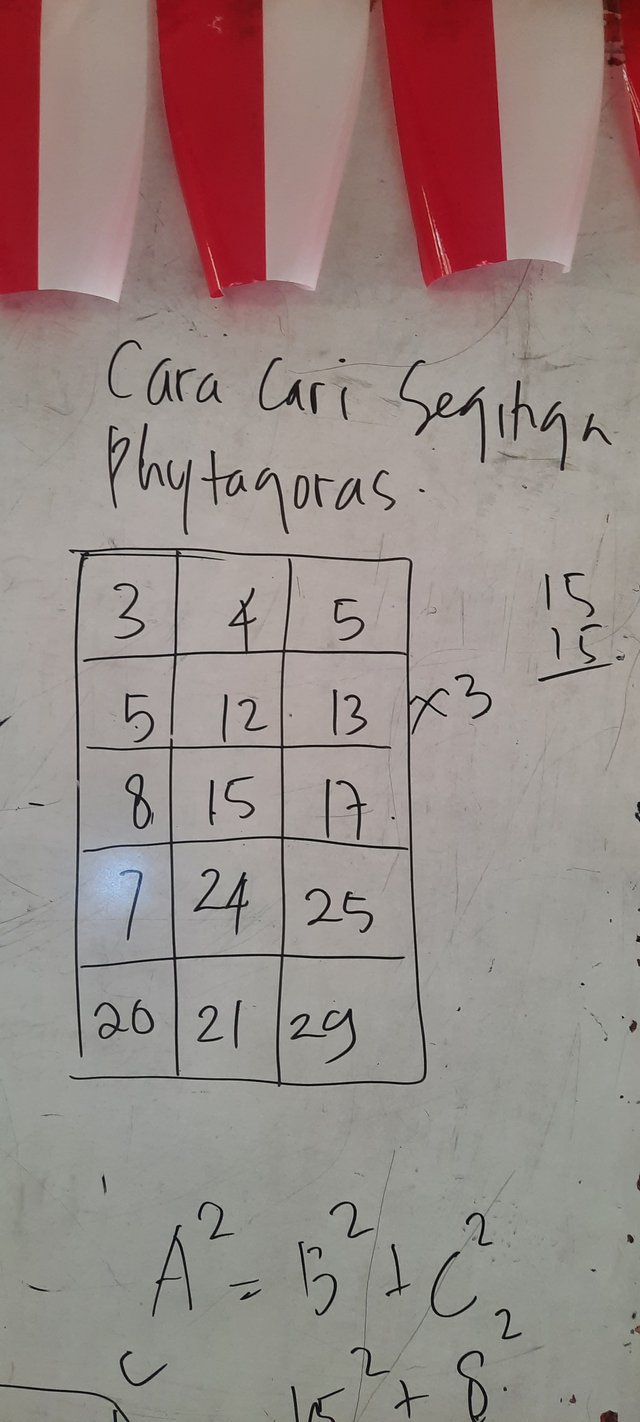 Cara Cari Segitiga
Phytagoras.
3 4 5
5 12 13 x3
8 15 17
7 24 25
20 21 29
15
15
A² = B² + C²
C
15² + 8²